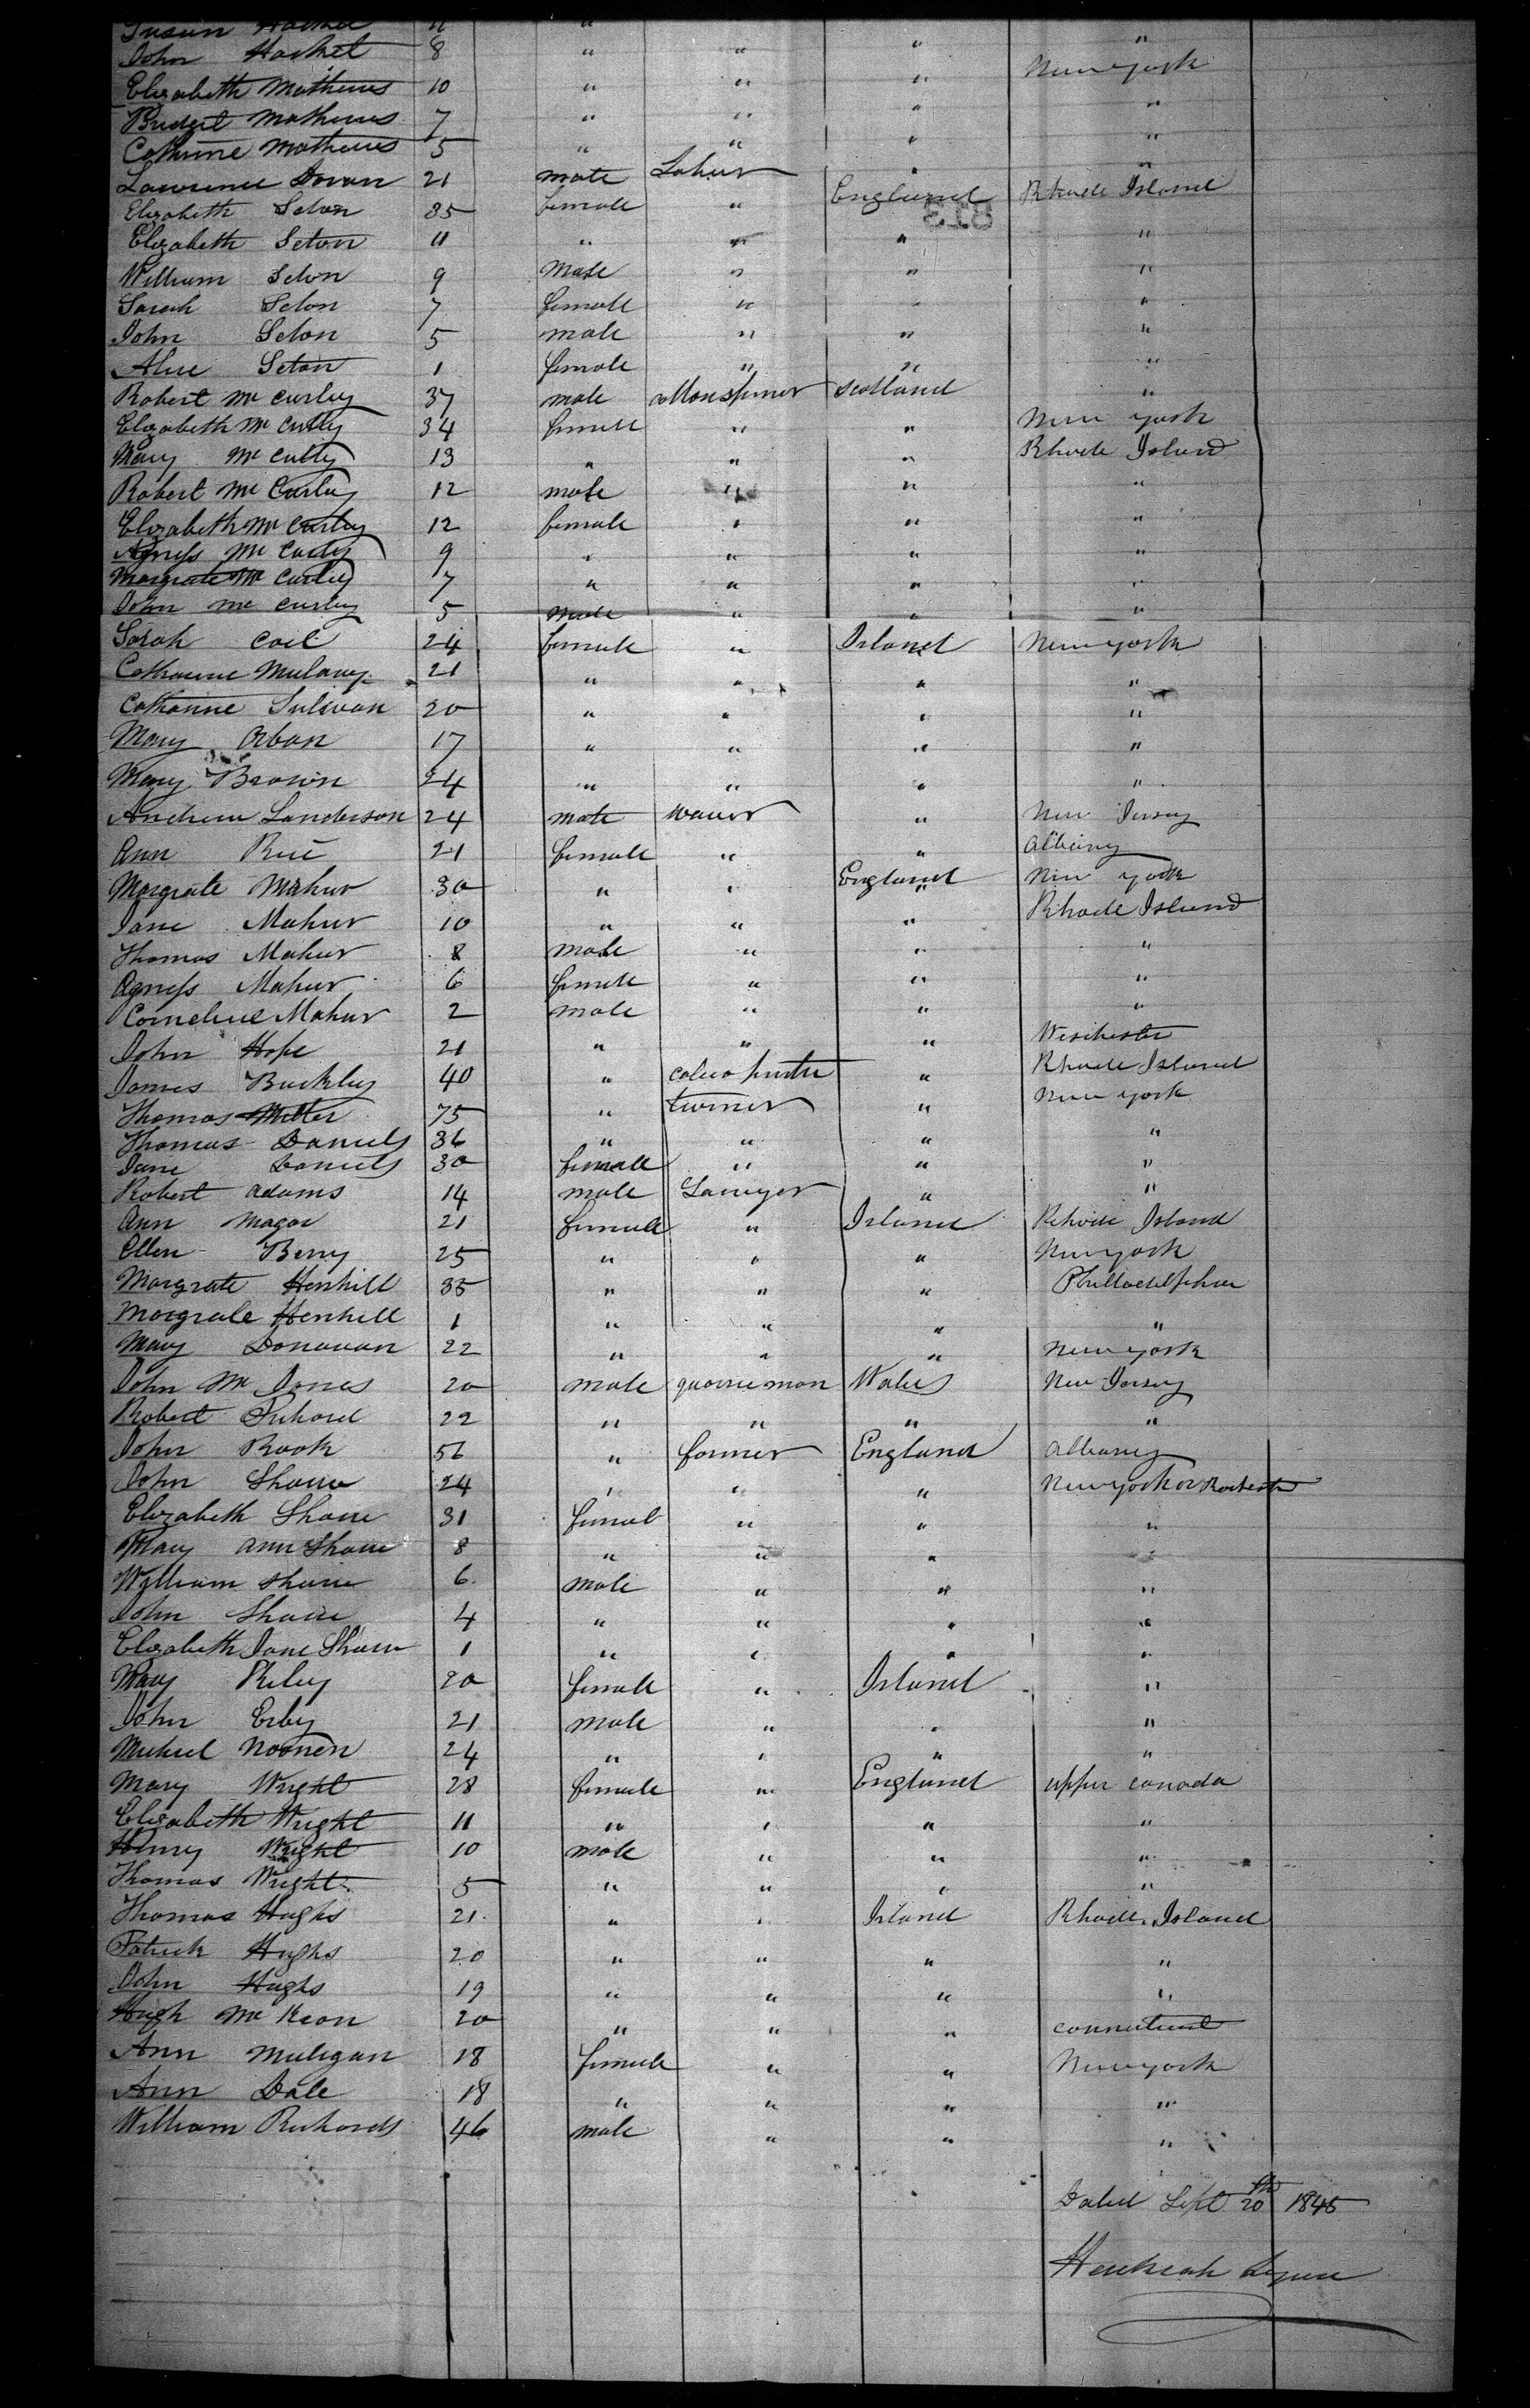 Susan Hacket 11 " 
John Hacket 8 " " " "
Elizabeth Mathews 10 " " " New york
Bridget Mathews 7 " " " "
Catherine Mathews 5 " " " "
Lawrence Doran 21 male Labur " "
Elizabeth Seton 35 female " England Rhode Island
813
Elizabeth Seton 11 " " " "
William Seton 9 male " " "
Sarah Seton 7 female " " "
John Seton 5 male " " "
Alice Seton 1 female " " "
Robert Mc Curley 37 male Scotland "
Elizabeth Mc Curley 34 female " " New york
Mary Mc Curley 13 " " " Rhode Island
Robert Mc Curley 12 male " " "
Elizabeth Mc Curley 12 female " " "
Agness Mc Curley 9 " " " "
Margrate Mc Curley 7 " " " "
John Mc Curley 5 male " " "
Sarah Coil 24 female " Irland New york
Catharine Mulany 21 " " " "
Catharine Sulivan 20 " " " "
Mary Orban 17 " " " "
Mary Brown 24 " " " "
Andrew Sanderson 24 male " New Jersey
Ann Rice 21 female " " Albany
Margrate Mahur 30 " " England New york
Jane Mahur 10 " " " Rhode Island
Thomas Mahur 8 male " " "
Agness Mahur 6 female " " "
Mahur 2 male " " "
John Hope 21 " " " Weschester
James Buckley 40 " " Rhode Island
Thomas Miller 75 " turner " New york
Thomas Daniels 36 " " " "
Jane Daniels 30 female " " "
Robert Adams 14 male Sawyer " "
Ann Magar 21 female " Irland Rhode Island
Ellen Berry 25 " " " New york
Margrate Henhill 35 " " " Philladelphia
Margrate Henhill 1 " " " "
Mary Donavan 22 " " " New york
John Mc Jones 20 male quarrieman Wales New Jersey
Robert 22 " " " "
John Rook 56 " farmer England Albany
John Shaw 24 " " " New york or Rochester
Elizabeth Shaw 31 femal " " "
Mary ann Shaw 8 " " " "
William Shaw 6 male " " "
John Shaw 4 " " " "
Elizabeth Jane Shaw 1 " " " "
Mary Riley 20 female " Irland "
John Erby 21 male " " "
Michael Noonen 24 " " " "
Mary Wright 28 female " England upper canada
Elizabeth Wright 11 " " " "
Henry Wright 10 male " " "
Thomas Wright 5 " " " "
Thomas Hughs 21 " " Irland Rhode Island
Patrick Hughs 20 " " " "
John Hughs 19 " " " "
Hugh Mc Keon 20 " " " connecticut
Ann Muligan 18 female " " New york
Ann Dale 18 " " " "
William Richards 46 male " " "
Dated Sept 20th 1845